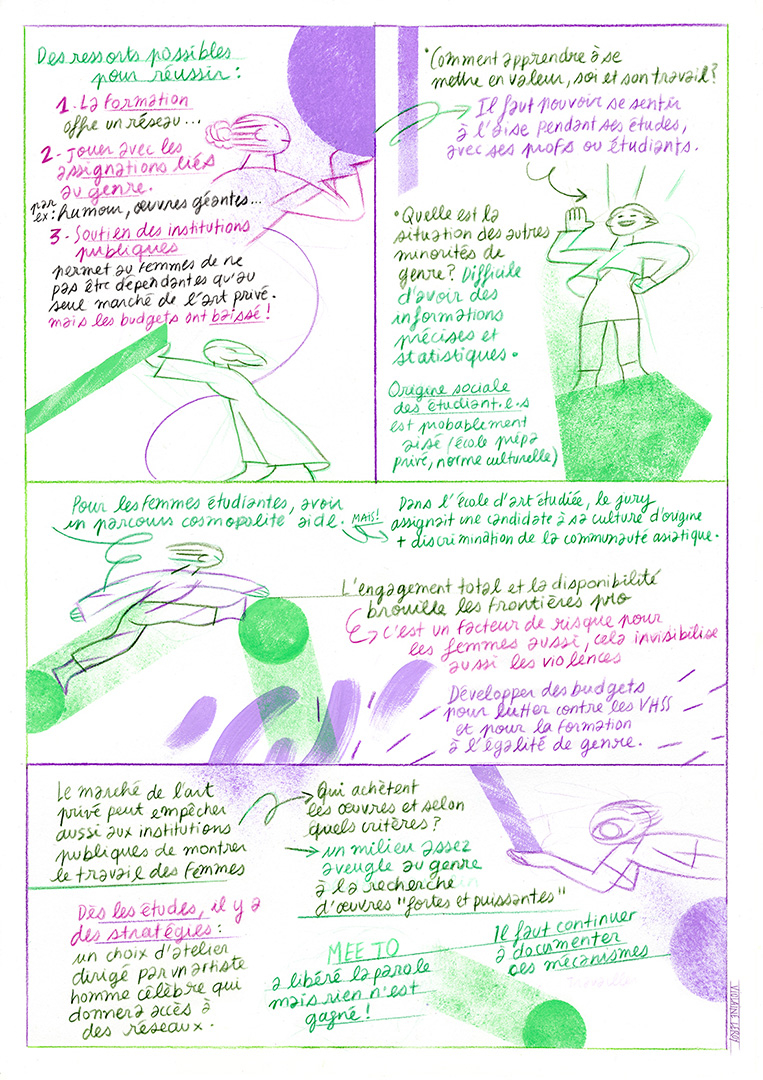 Des ressorts possibles
pour réussir :
1 - La formation
offre un réseau...
2 - Jouer avec les
assignations liés
au genre.
par
ex : humour, œuvres géantes...
3 - Soutien des institutions
publiques
permet au femmes de ne
pas être dépendantes qu'au
seul marché de l'art privé.
mais les budgets ont baissé !
• Comment apprendre à se
mettre en valeur, soi et son travail ?
Il faut pouvoir se sentir
à l'aise pendant ses études,
avec ses profs ou étudiants.
• Quelle est la
situation des autres
minorités de
genre ? Difficile
d'avoir des
informations
précises et
statistiques.
Origine sociale
des étudiant.e.s
est probablement
aisé (école prépa
privé, norme culturelle)
Pour les femmes étudiantes, avoir
un parcours cosmopolité aide.
MAIS !
Dans l'école d'art étudiée, le jury
assignait une candidate à sa culture d'origine
+ discrimination de la communauté asiatique.
L'engagement total et la disponibilité
brouille les frontières pro
C'est un facteur de risque pour
les femmes aussi, cela invisibilise
aussi les violences
Développer des budgets
pour lutter contre les VHSS
et pour la formation
à l'égalité de genre.
Le marché de l'art
privé peut empêcher
aussi aux institutions
publiques de montrer
le travail des femmes
Qui achètent
les œuvres et selon
quels critères ?
un milieu assez
aveugle au genre
à la recherche
d'œuvres "fortes et puissantes"
Dès les études, il y a
des stratégies :
un choix d'atelier
dirigé par un artiste
homme célèbre qui
donnera accès à
des réseaux.
MEE TO
a libéré la parole
mais rien n'est
gagné !
Il faut continuer
à documenter
ces mécanismes
VIOLAINE LEROY